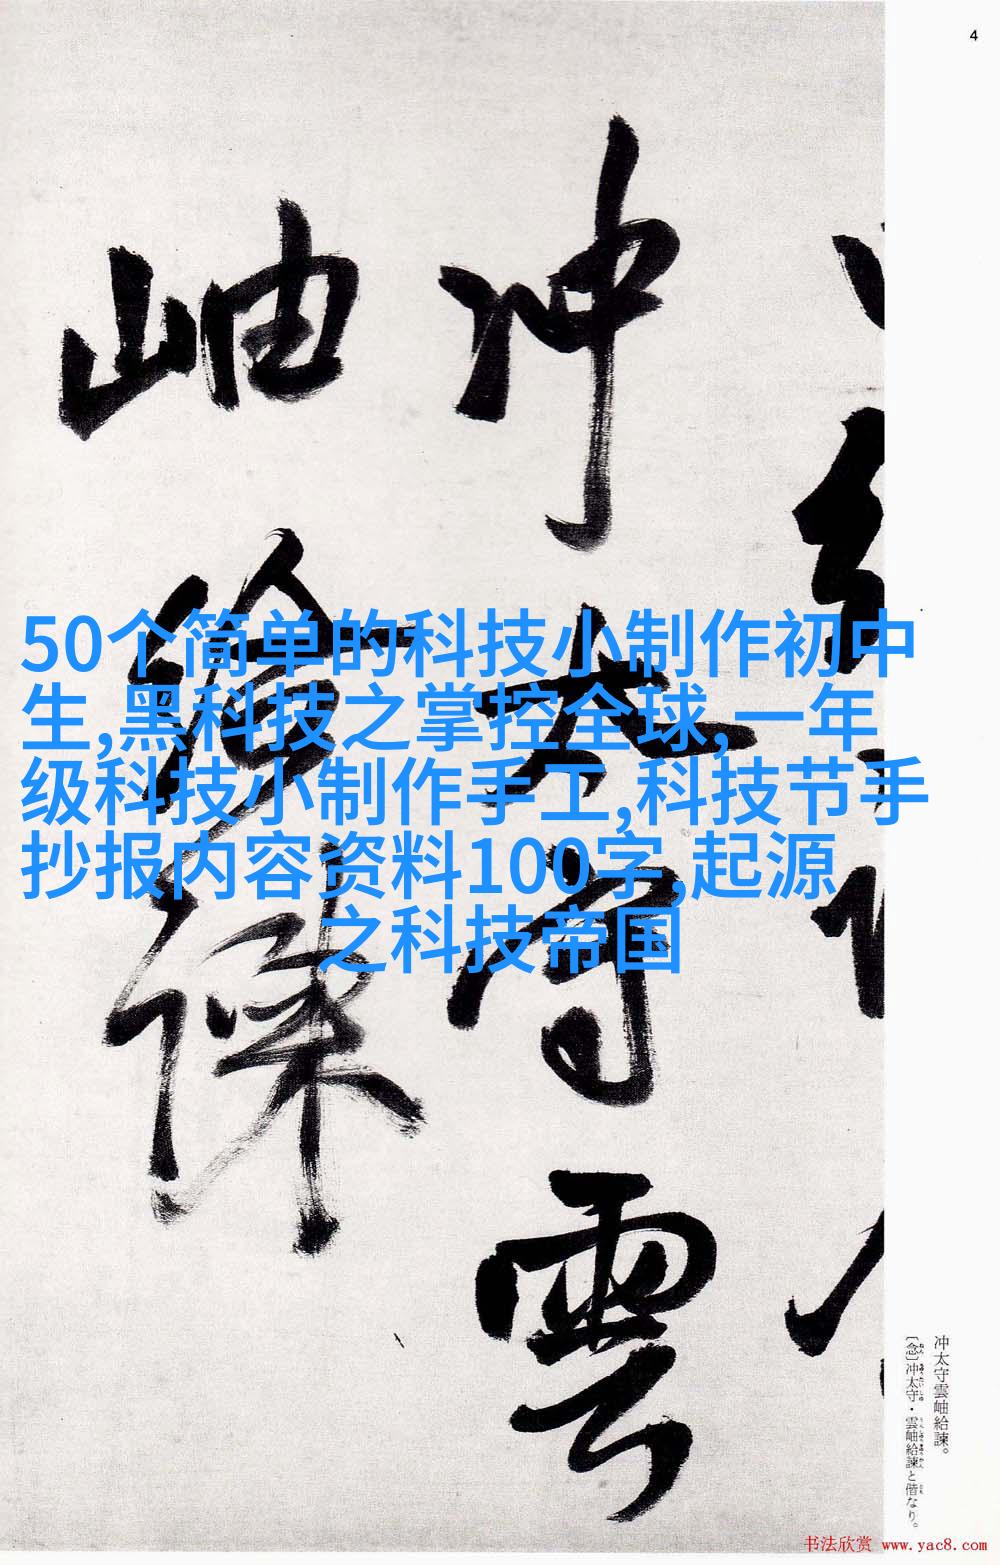 4
冲太守雲
岫給諫
50个简单的科技小制作初中
生,黑科技之掌控全球,一年
级科技小制作手工,科技节手
抄报内容资料100字,起源
之科技帝国
冲太守雲岫給諫。
〔念〕冲太守・雲岫給諫と偕なり。
书法欣赏 www.yac8.com